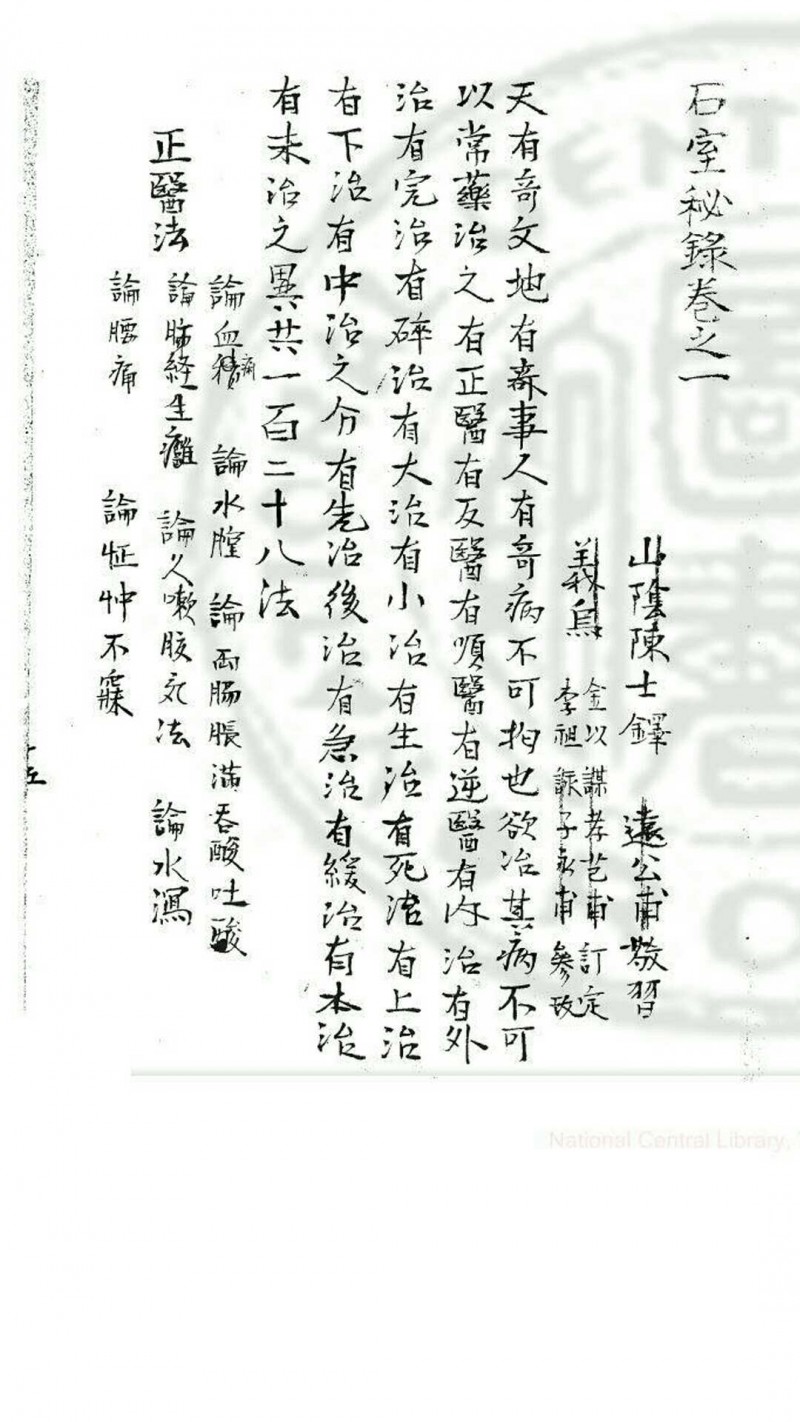 石室秘錄卷之一
山陰陳士鐸 遠公甫敬習
義烏 金以謀孝芑甫訂定
李祖詠子永甫參攷
天有奇文地有奇事人有奇病不可拘也欲治其病不可
以常藥治之有正醫有反醫有順醫有逆醫有內治有外
治有完治有碎治有大治有小治有生治有死治有上治
有下治有中治之分有先治後治有急治有緩治有本治
有末治之異共一百二十八法
正醫法
論血積痛 論水膛 論兩腸脹滿吞酸吐酸
論肺經生癰 論久嗽服氣法 論水瀉
論腰痛 論怔忡不寐
National Central Library,